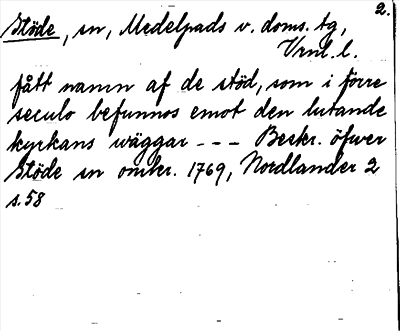 2.
Stöde, sn, Medelpads v. doms. tg,
Vrnl. l.
fått namn af de stöd, som i förre
seculo befunnos emot den lutande
kyrkans wäggar --- Beskr. öfwer
Stöde sn omkr. 1769, Nordlander 2
s. 58